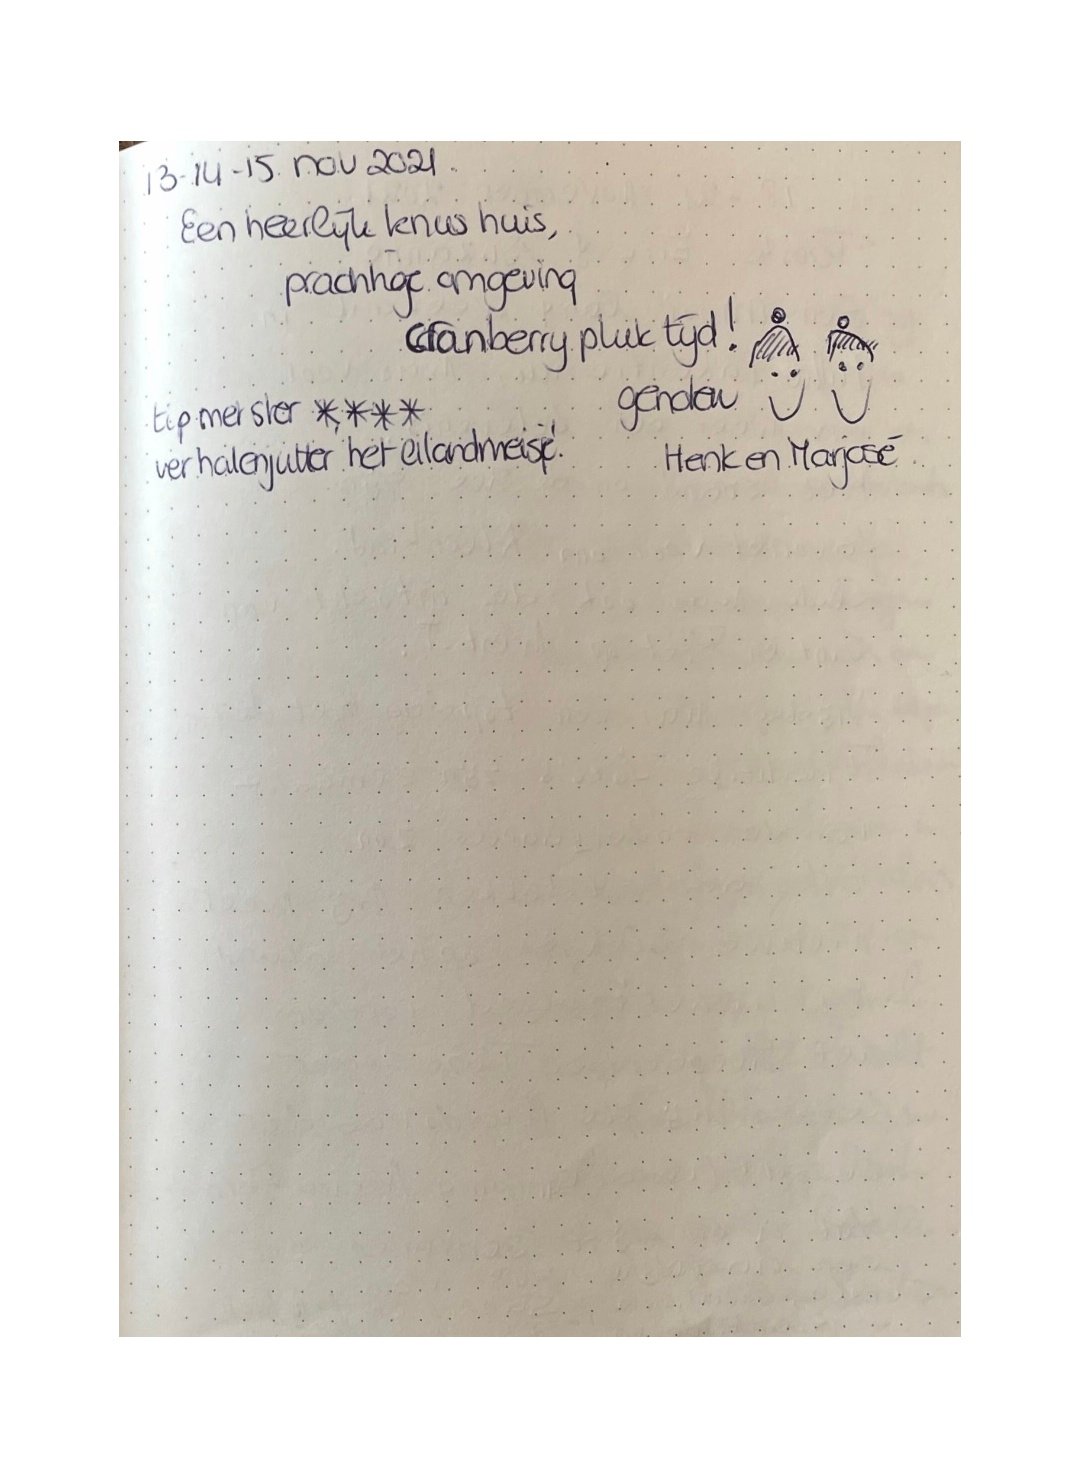 13-14-15 nov 2021.
Een heerlijk knus huis,
prachtige omgeving
cranberry pluk tijd!
genoten
tip met ster ****
verhalenjutter 'het eilandmeisje'.
Henk en Marjosé